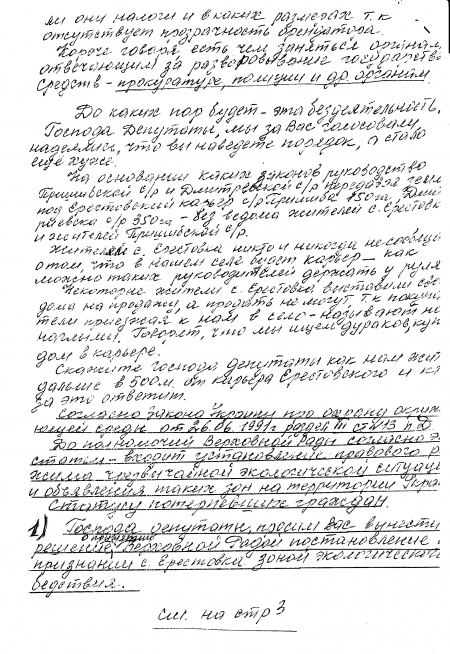 ли они налоги и в каких размерах т.к
отсутствует прозрачность арендатора.
Короче говоря есть чем заняться органам,
отвечающим за разворовывание государств
средств - прокуратуре, полиции и др. органам
До каких пор будет - эта бездеятельность.
Господа Депутаты, мы за Вас голосовали,
надеялись, что вы наведете порядок, а стало
ещё хуже.
На основании каких законов руководство
Пришибской с/р и Дмитровской с/р передали земли
под Ерестовский карьер с/р Пришиба 150га, Дмит
ровска с/р 350га - без ведома жителей с. Ерестовк
и жителей Пришибской с/р.
Жителям с. Ерестовка никто и никогда не сообщи
о том, что в нашем селе будет карьер - как
можно таких руководителей держать у руля
Некоторые жители с. Ерестовка выставили сво
дома на продажи, а продать не могут т.к покупа
тели приезжая к нам в село - называют на
наглыми. Говорят, что мы ищем дураков, куп
дом в карьере.
Скажите господа депутаты как нам жит
дальше в 500м. от карьера Ерестовского и кт
за это ответит.
Согласно Закона Украины про охрану окруж
ющей среды от 26.06 1991г раздел III ст
До полномочий Верховной Рады согласно э
статьи - входит установление правового р
жима чрезвычайной экологической ситуаци
и объявления таких зон на территории Укра
Статусу потерпевших граждан.
1) Господа депутаты, просим вас вынести
решение Верховной Радой постановление
признании с. Ерестовки зоной экологического
бедствия.
см. на стр 3